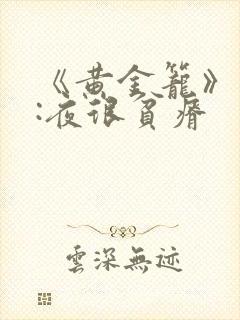 《黄金籠》
:夜很貧瘠
雲深無迹